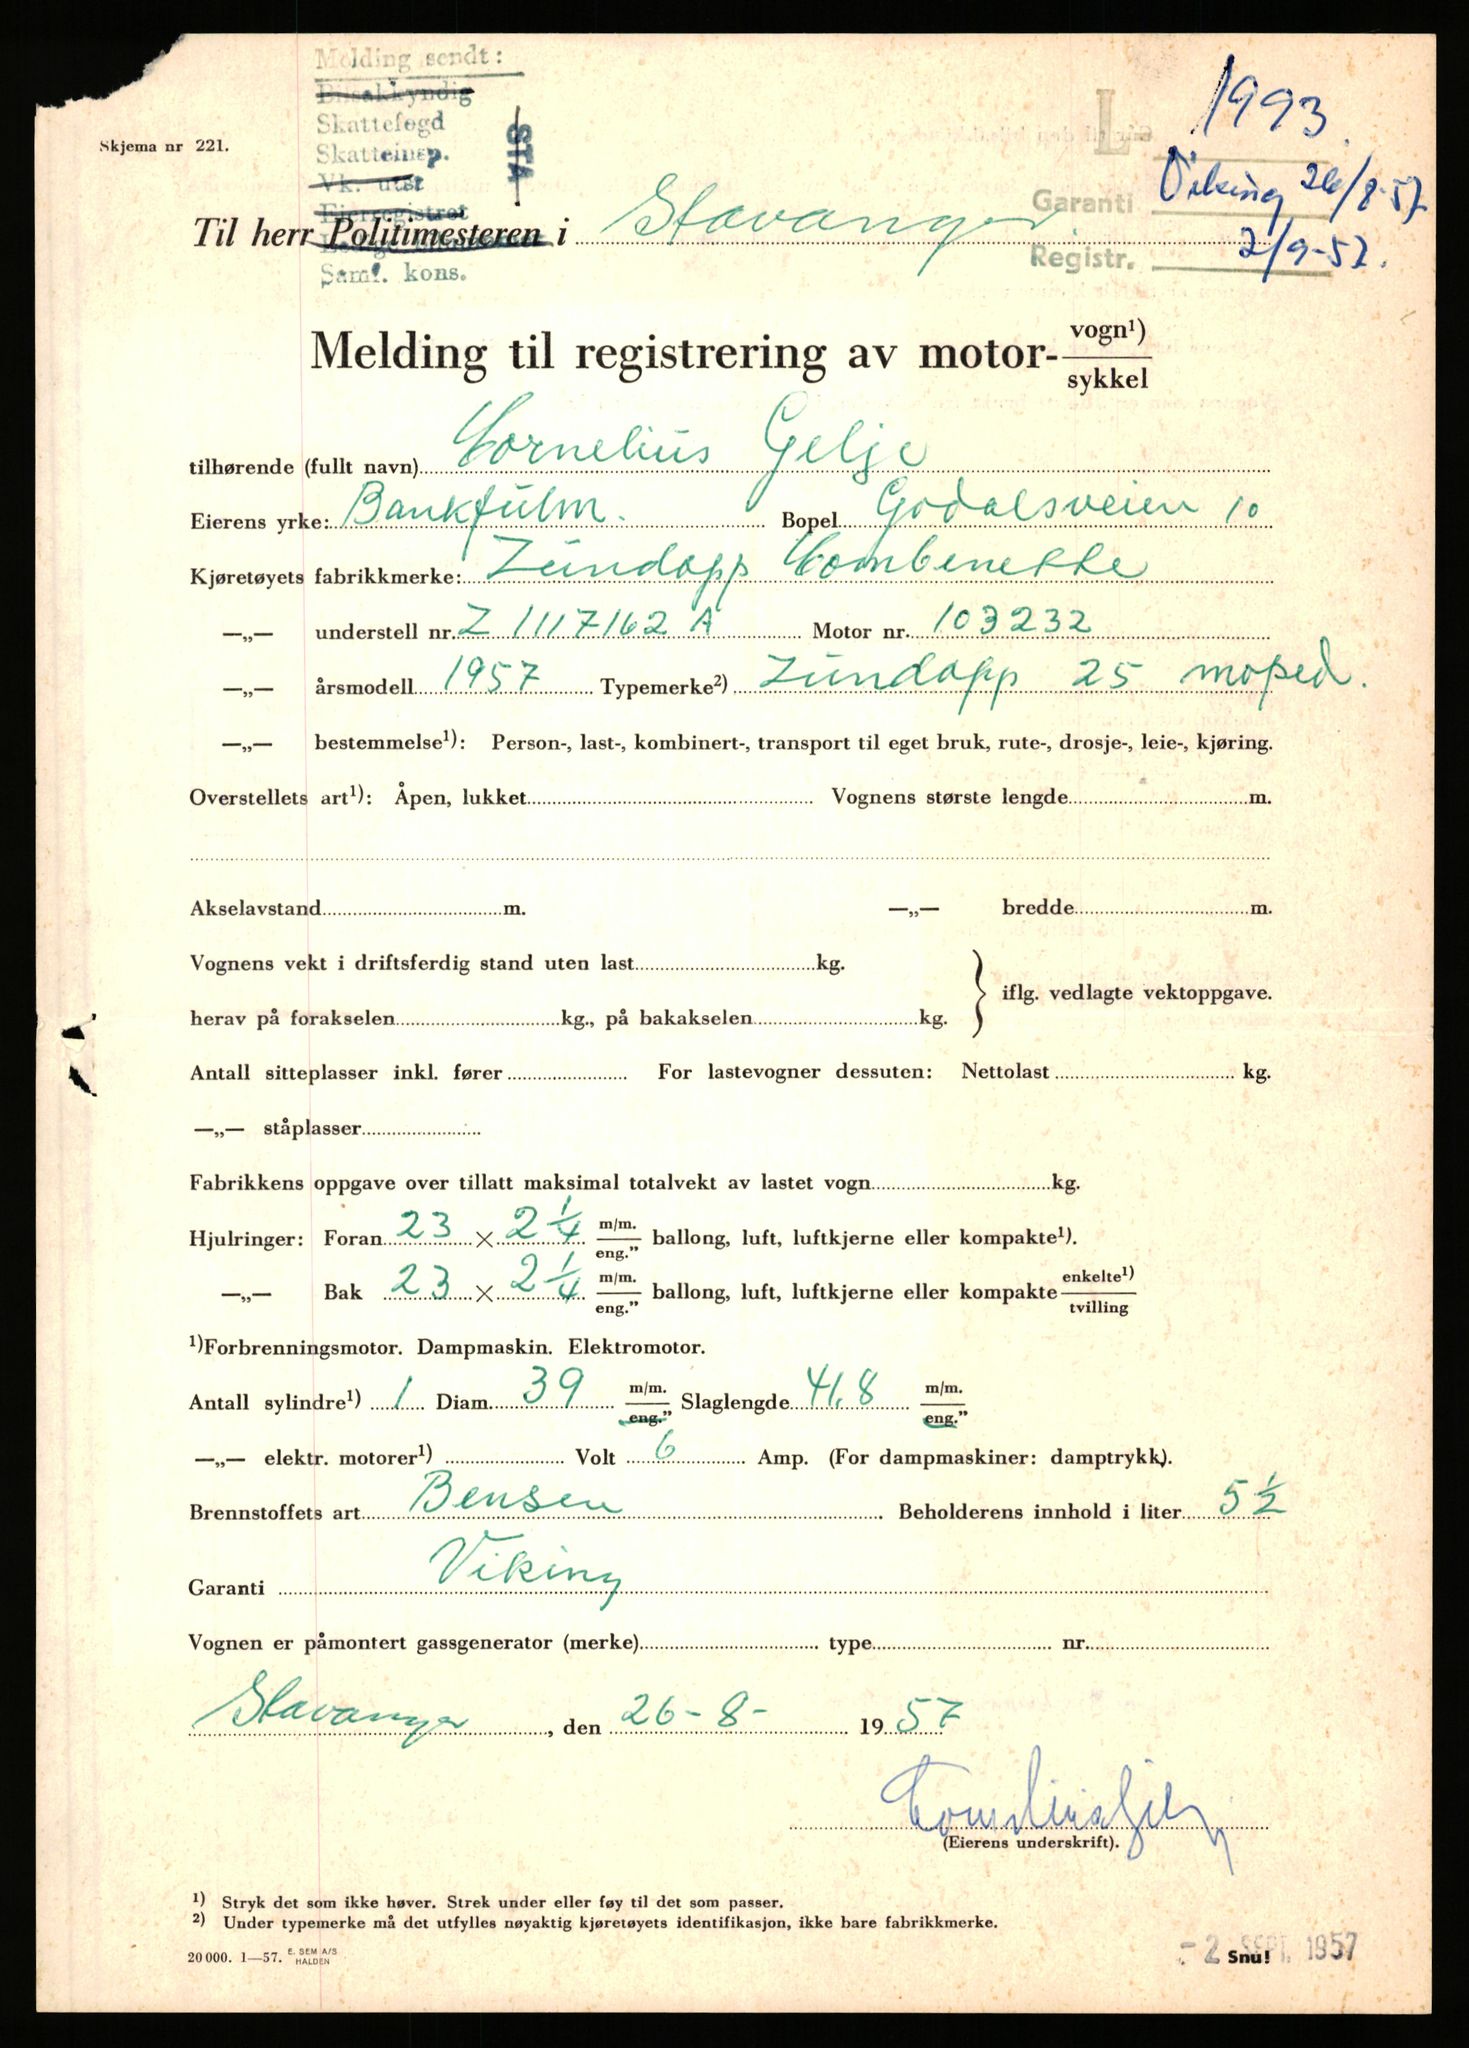 Melding sendt:
Bilsakkyndig
Skattefogd
Skatteinsp.
Vk. utst
Eierregistret
Samf. kons.
STA
L
1993
Skjema nr 221.
Garanti Viking 26/8-57
Til herr Politimesteren i Stavanger.
Registr. 2/9-57.
Melding til registrering av motor- vogn¹) / sykkel
tilhørende (fullt navn) Cornelius Gelje
Eierens yrke: Bankfulm. Bopel Godalsveien 10
Kjøretøyets fabrikkmerke: Zündapp Combenette
—„— understell nr. Z 1117162 A Motor nr. 103232
—„— årsmodell 1957 Typemerke²) Zündapp 25 moped.
—„— bestemmelse¹): Person-, last-, kombinert-, transport til eget bruk, rute-, drosje-, leie-, kjøring.
Overstellets art¹): Åpen, lukket Vognens største lengde m.
Akselavstand m. —„— bredde m.
Vognens vekt i driftsferdig stand uten last kg.
iflg. vedlagte vektoppgave.
herav på forakselen kg., på bakakselen kg.
Antall sitteplasser inkl. fører For lastevogner dessuten: Nettolast kg.
—„— ståplasser
Fabrikkens oppgave over tillatt maksimal totalvekt av lastet vogn kg.
Hjulringer: Foran 23 × 2 1/4 m/m. / eng.” ballong, luft, luftkjerne eller kompakte¹).
—„— Bak 23 × 2 1/4 m/m. / eng.” ballong, luft, luftkjerne eller kompakte enkelte¹) / tvilling
¹)Forbrenningsmotor. Dampmaskin. Elektromotor.
Antall sylindre¹) 1 Diam. 39 m/m. / eng.” Slaglengde 41,8 m/m. / eng.”
—„— elektr. motorer¹) Volt 6 Amp. (For dampmaskiner: damptrykk).
Brennstoffets art Bensen Beholderens innhold i liter 5 1/2
Garanti Viking
Vognen er påmontert gassgenerator (merke) type nr.
Stavanger, den 26-8- 1957
(Eierens underskrift).
¹) Stryk det som ikke høver. Strek under eller føy til det som passer.
²) Under typemerke må det utfylles nøyaktig kjøretøyets identifikasjon, ikke bare fabrikkmerke.
20 000. 1—57. E. SEM A/S HALDEN
- 2 SEPT. 1957
Snu!